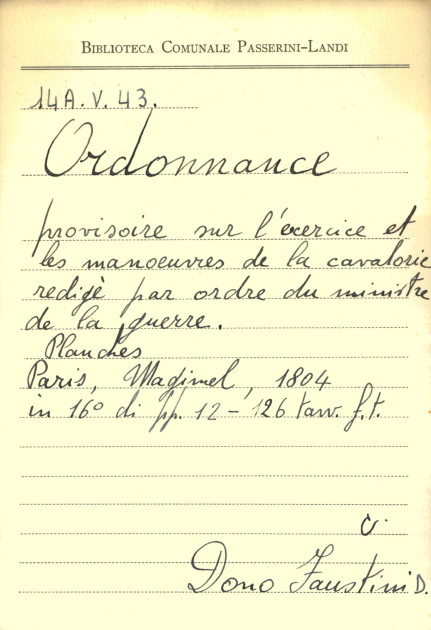 BIBLIOTECA COMUNALE PASSERINI-LANDI
14A.V.43.
Ordonnance
provisoire sur l'exercice et
les manoeuvres de la cavalerie
redigè par ordre du ministre
de la guerre.
Planches
Paris, Magimel, 1804
in 16º di pp. 12 - 126 tavv. f.t.
Dono Faustini D.